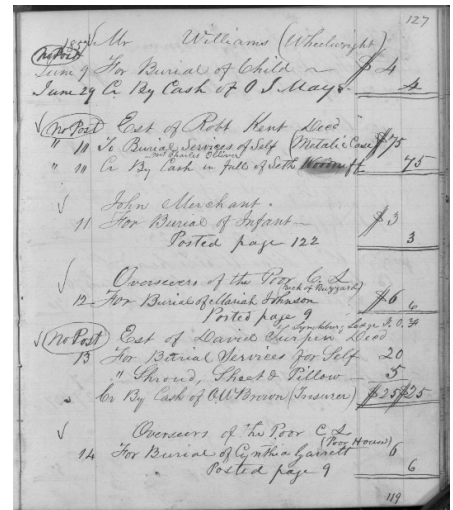 127
1857 Mr Williams (Wheelwright)
No Post
June 9 For Burial of Child ~ $4
June 29 Cr By Cash of O S Mays. 4
(No Post) Est of Robt Kent Decd
" 10 To Burial Services of Self (Metalic Case) $75
Mrs Charles
" 10 Cr By Cash in full of Seth Woodruff 75
John Merchant.
11 For Burial of Infant— $3
Posted page 122 3
Overseers of the Poor C. L
12 For Burial of Mariah Johnson $6 6
Posted page 9
of Lynchburg Lodge I. O.
(No Post) Est of David Turpin Decd
13 For Burial Services for Self 20
" Shroud, Sheet & Pillow — 5
" Cr By Cash of OW Brown (Tresurer) $25 $25
Overseers of the Poor C L
(Poor House)
14 For Burial of Cynthia Garrett 6
Posted page 9 6
119